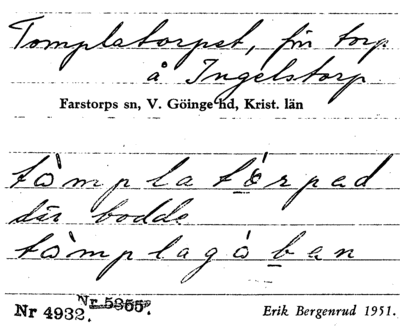 Tomplatorpet, fm torp
å Ingelstorp
Farstorps sn, V. Göinge hd, Krist. län
tòmpla tòrpad
där bodde
tòmplagòban
Nr 4932. Nr 5355.
Erik Bergenrud 1951.